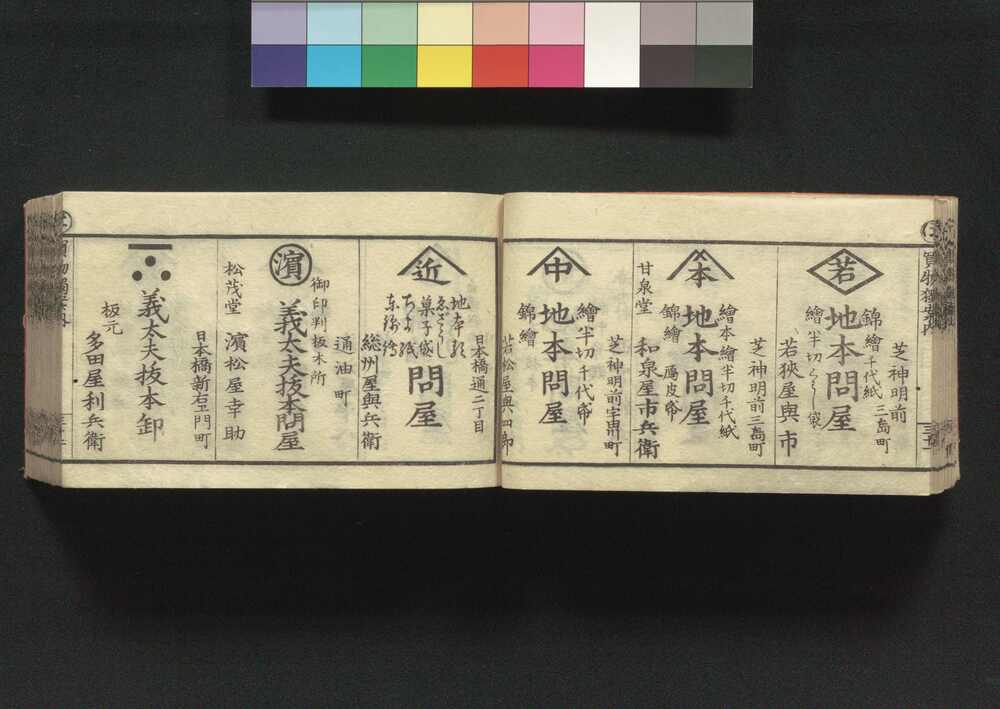 芝神明前
三島町
錦繪千代紙
若
地本問屋
若狹屋與市
芝神明前三島町
繪本繪半切千代紙
本
地本問屋
錦繪
甘泉堂
和泉屋市兵衛
芝神明前宇田川町
繪半切千代紙
中
地本問屋
錦繪
若松屋與四郎
日本橋通二丁目
近
菓子袋
問屋
総州屋與兵衛
通油町
御印判板木所
濱
義太夫抜本問屋
松茂堂
濱松屋幸助
日本橋新右エ門町
義太夫抜本卸
板元
多田屋利兵衛